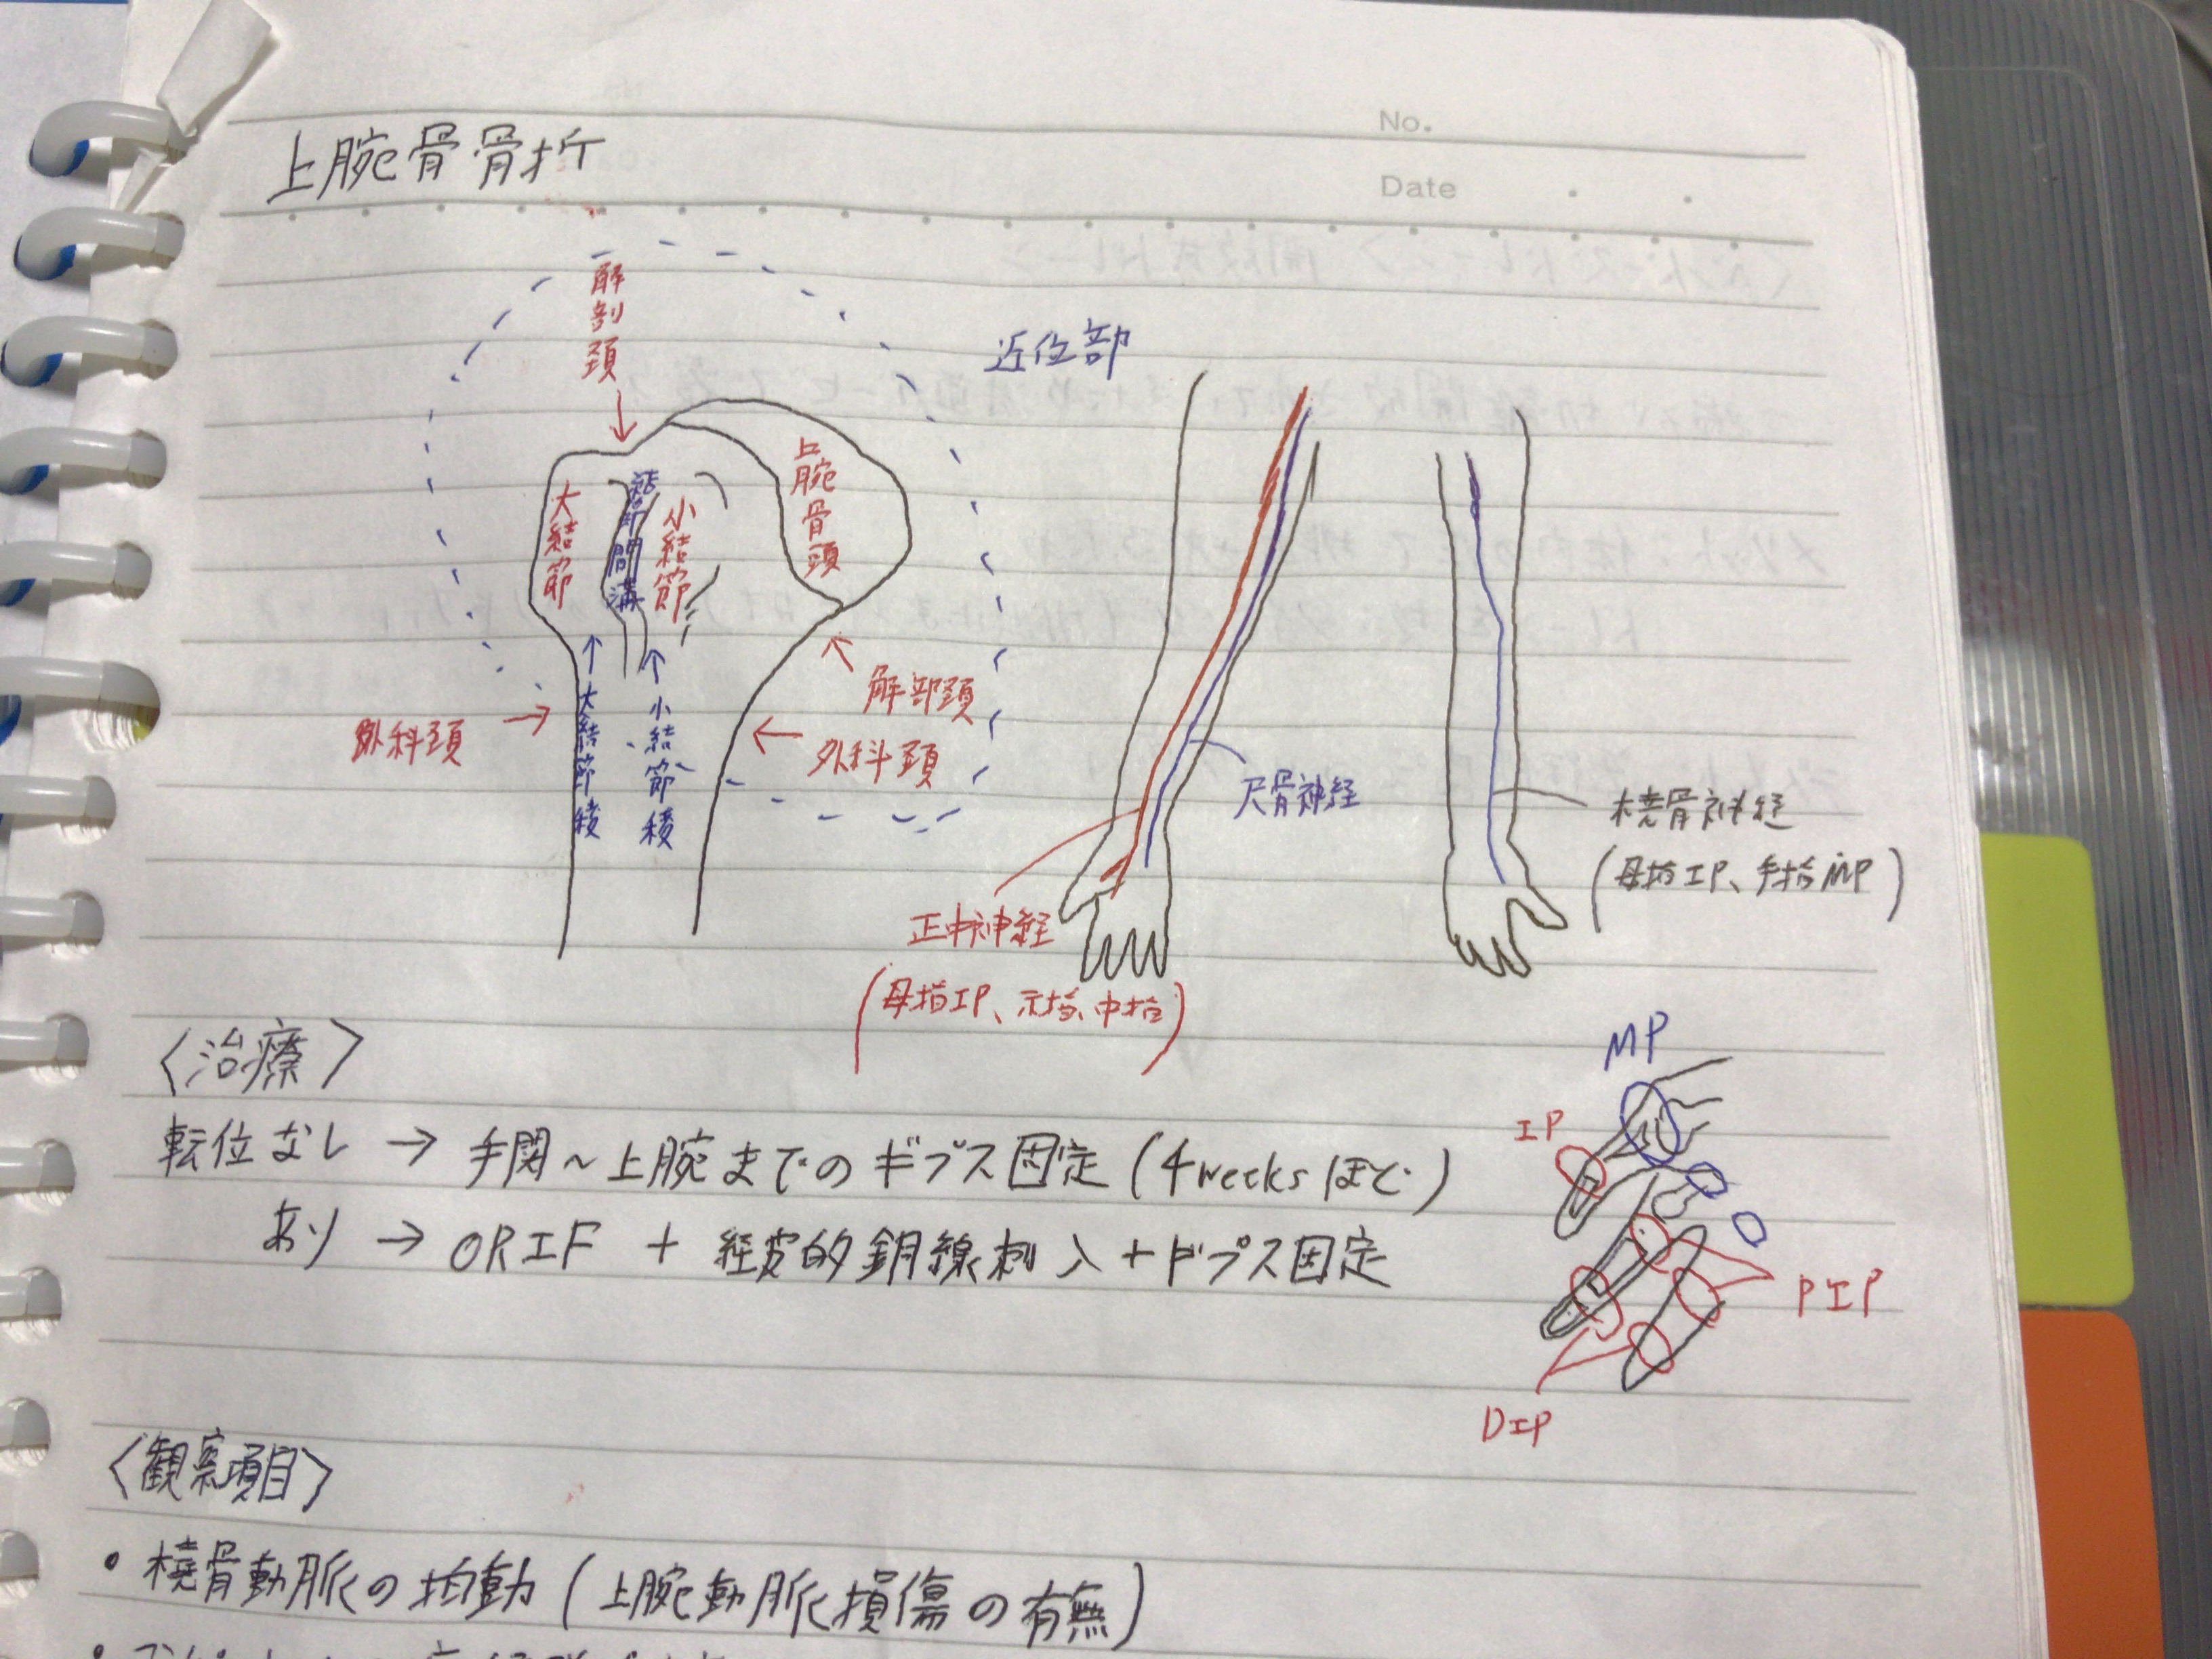 No.
上腕骨骨折
Date
解剖頚
近位部
上腕骨頭
大結節
結節間溝
小結節
解部頚
外科頚
外科頚
大結節稜
小結節稜
尺骨神経
橈骨神経
(母指IP、手指MP)
正中神経
(母指IP、示指、中指)
〈治療〉
MP
IP
転位なし → 手関~上腕までのギプス固定(4weeksほど)
あり → ORIF + 経皮的鋼線刺入+ギプス固定
PIP
DIP
〈観察項目〉
・橈骨動脈の拍動(上腕動脈損傷の有無)